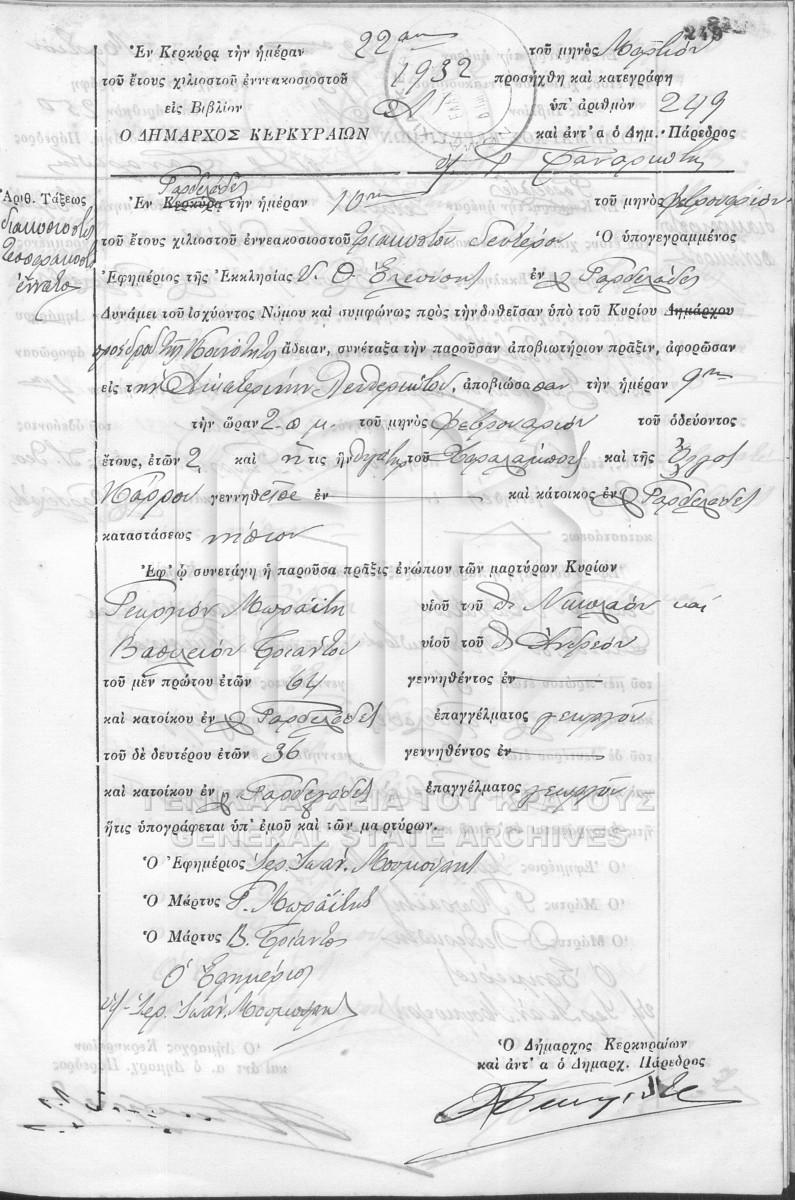 249
Ἐν Κερκύρᾳ τὴν ἡμέραν 22αν τοῦ μηνὸς Μαρτίου
τοῦ ἔτους χιλιοστοῦ ἐννεακοσιοστοῦ 1932 προσήχθη καὶ κατεγράφη
εἰς Βιβλίον Α ὑπ' ἀριθμὸν 249
Ὁ ΔΗΜΑΡΧΟΣ ΚΕΡΚΥΡΑΙΩΝ καὶ ἀντ' α ὁ Δημ. Πάρεδρος
Ἀριθ. Τάξεως
διακοσιοστὸς
τεσσρακοστὸς
ἔννατος
Γαρδελάδες
Ἐν Κερκύρᾳ τὴν ἡμέραν 10ην τοῦ μηνὸς Φεβρουαρίου
τοῦ ἔτους χιλιοστοῦ ἐννεακοσιοστοῦ τριακοστοῦ δευτέρου Ὁ ὑπογεγραμμένος
Ἐφημέριος τῆς Ἐκκλησίας Υ. Θ. Ἐλεούσης ἐν Γαρδελάδες
Δυνάμει τοῦ ἰσχύοντος Νόμου καὶ συμφώνως πρὸς τὴν δοθεῖσαν ὑπὸ τοῦ Κυρίου Δημάρχου
προέδρου τῆς Κοινότητος ἄδειαν, συνέταξα τὴν παροῦσαν ἀποβιωτήριον πρᾶξιν, ἀφορῶσαν
εἰς την Αἰκατερίνην, ἀποβιώσασαν τὴν ἡμέραν 9ην
τὴν ὥραν 2 π μ. τοῦ μηνὸς Φεβρουαρίου τοῦ ὁδεύοντος
ἔτους, ἐτῶν 2 καὶ ἥτις ἦν θυγάτηρ τοῦ Χαραλάμπους καὶ τῆς Ὄλγας
Κάρρου γεννηθεῖσα ἐν καὶ κάτοικος ἐν Γαρδελάδες
καταστάσεως νήπιον
Ἐφ' ᾧ συνετάγη ἡ παροῦσα πρᾶξις ἐνώπιον τῶν μαρτύρων Κυρίων
Γεωργίου Μωραΐτη υἱοῦ τοῦ Νικολάου καὶ
Βασιλείου Τριάντου υἱοῦ τοῦ Ἀνδρέου
τοῦ μὲν πρώτου ἐτῶν 64 γεννηθέντος ἐν
καὶ κατοίκου ἐν Γαρδελάδες ἐπαγγέλματος γεωργοῦ
τοῦ δὲ δευτέρου ἐτῶν 36 γεννηθέντος ἐν
καὶ κατοίκου ἐν Γαρδελάδες ἐπαγγέλματος γεωργοῦ
ΓΕΝΙΚΑ ΑΡΧΕΙΑ ΤΟΥ ΚΡΑΤΟΥΣ
ἥτις ὑπογράφεται ὑπ' ἐμοῦ καὶ τῶν μαρτύρων.
GENERAL STATE ARCHIVES
Ὁ Ἐφημέριος Ἱερ. Ἰωάν.
Ὁ Μάρτυς Γ. Μωραΐτης
Ὁ Μάρτυς Β. Τριάντος
Ὁ Ἐφημέριος
Ἱερ. Ἰωάν.
Ὁ Δήμαρχος Κερκυραίων
καὶ ἀντ' α ὁ Δημαρχ. Πάρεδρος